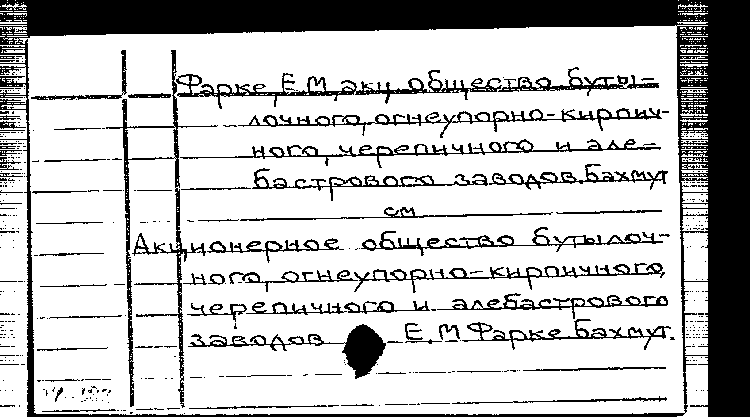 Фарке, Е.М, акц. общество буты=
лочного, огнеупорно-кирпич-
ного, черепичного и але=
бастрового заводов. Бахмут
см
Акционерное общество бутылоч-
ного, огнеупорно-кирпичного,
черепичного и алебастрового
заводов Е.М Фарке Бахмут.